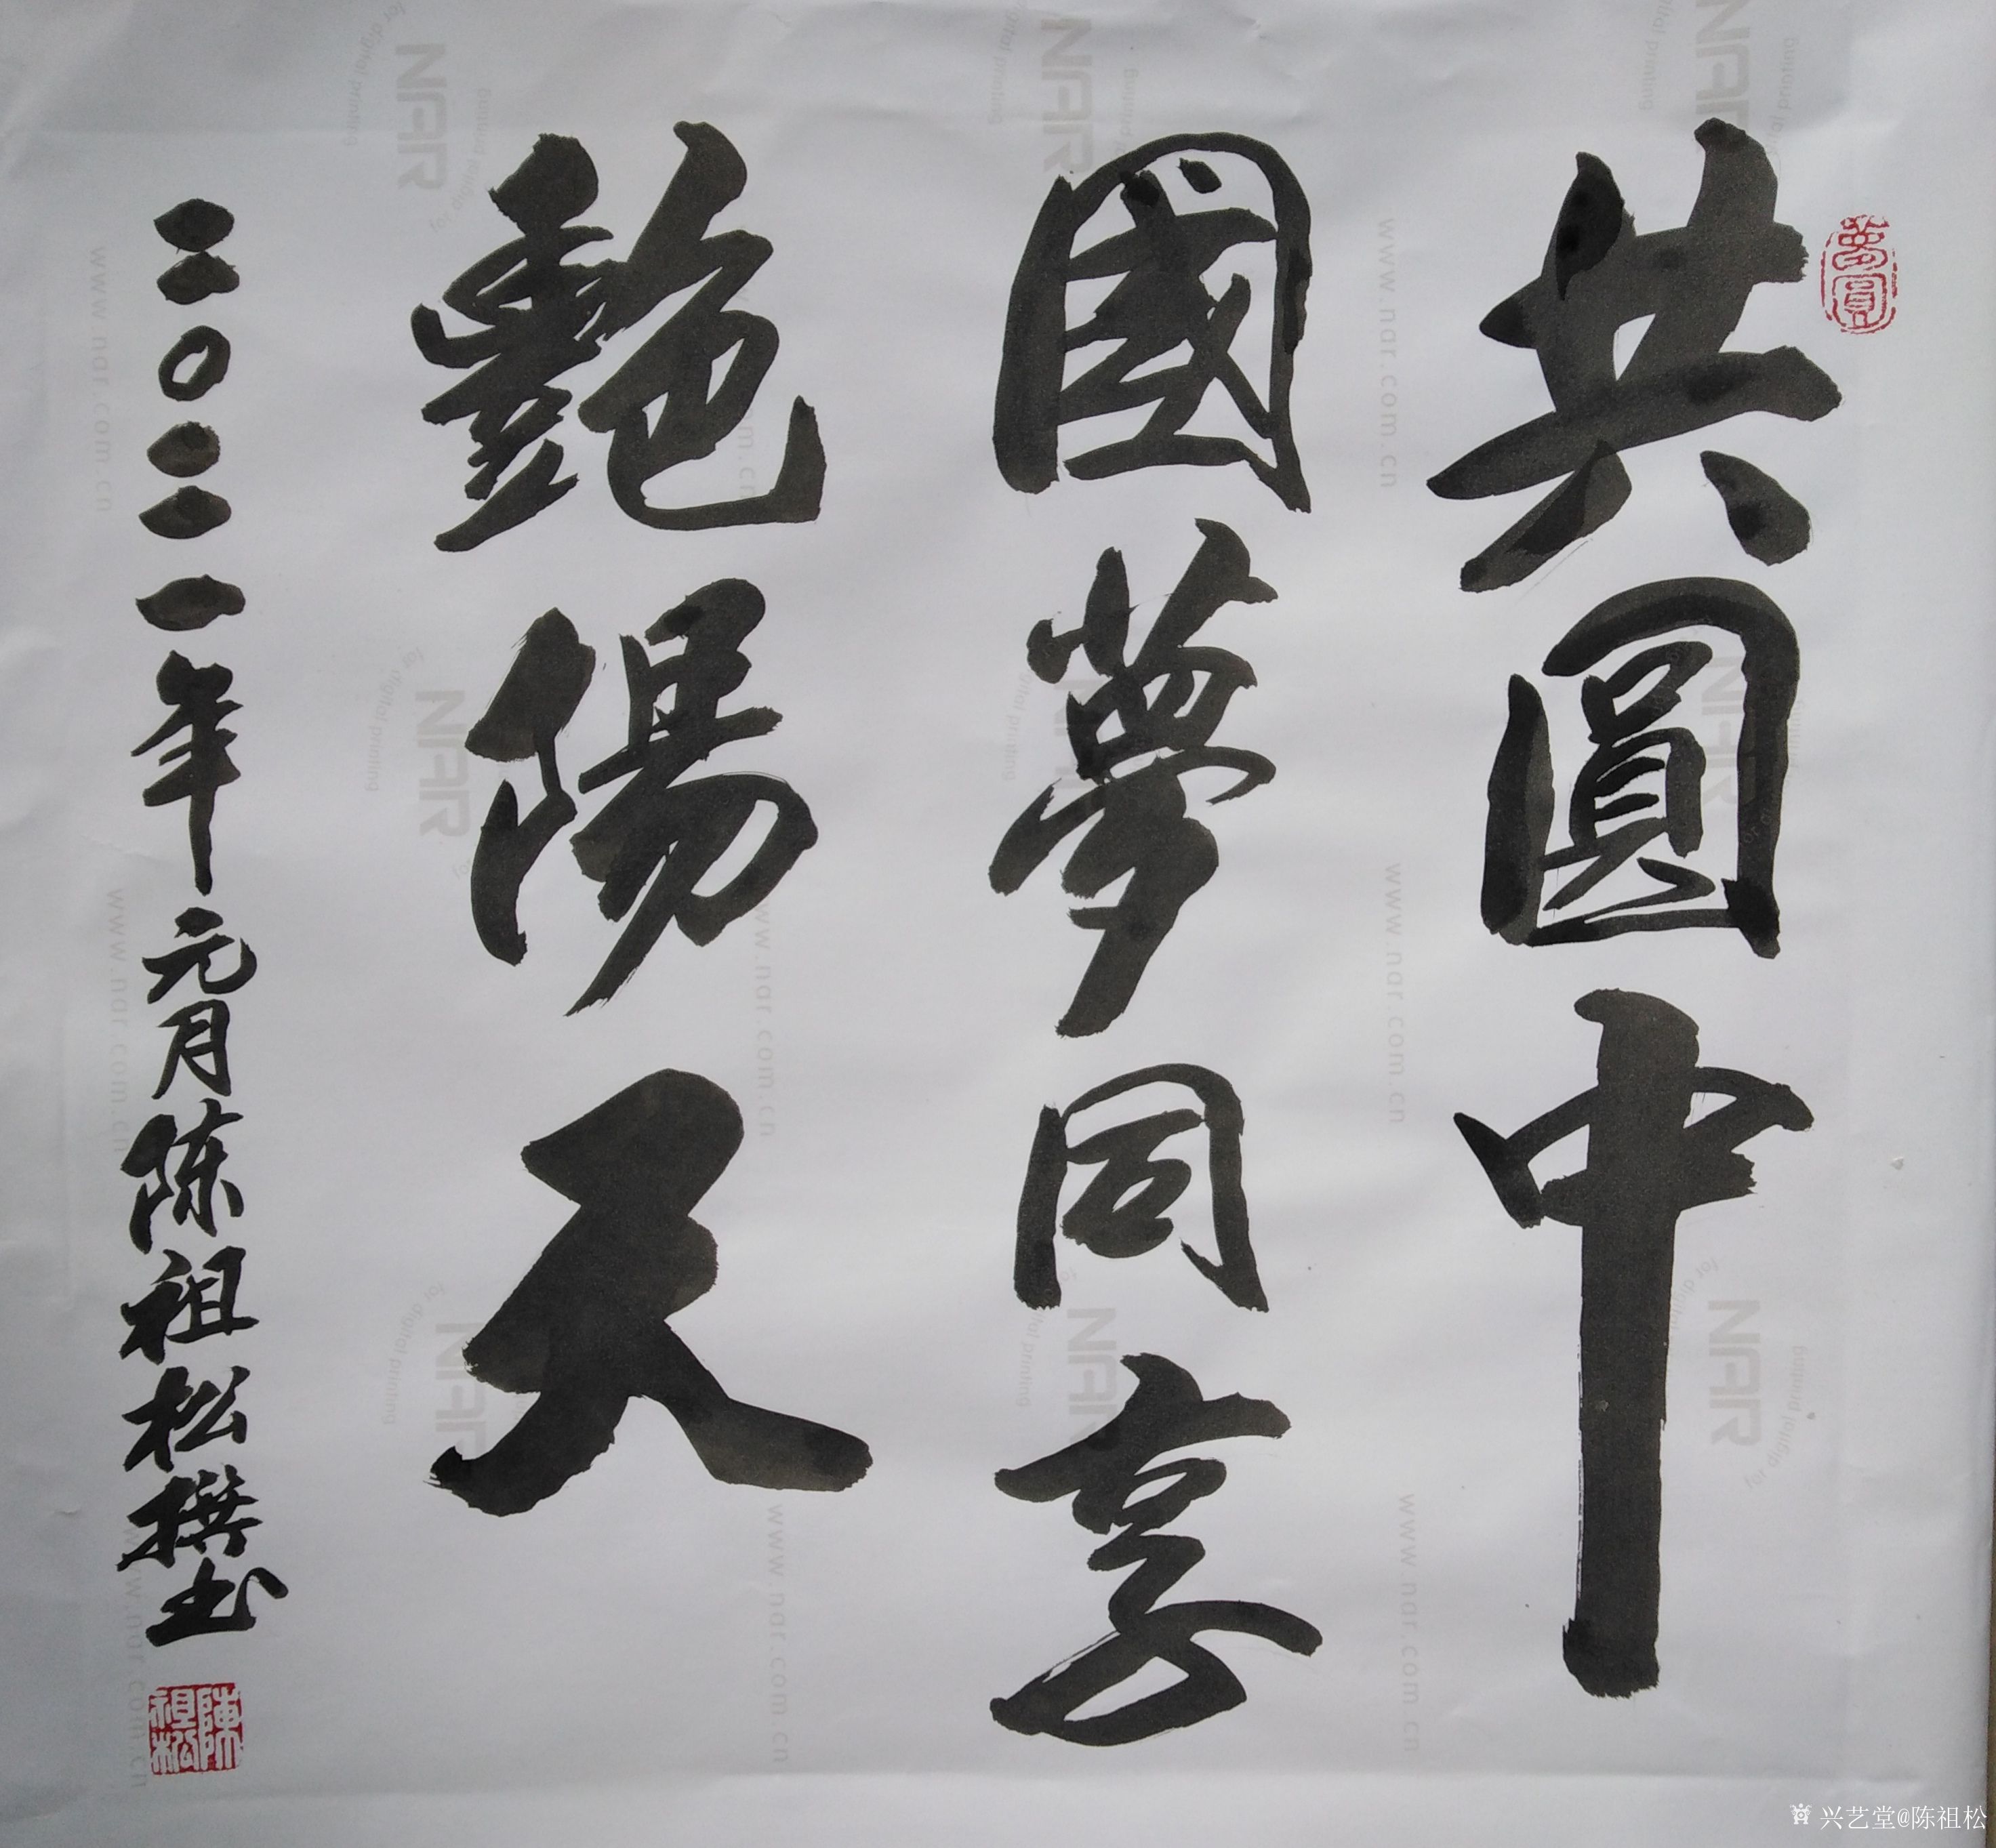 共圓中
國夢同享
艷陽天
二〇二一年元月陈祖松撰书
夢圓
陳祖松
NAR
for digital printing
www.nar.com.cn
兴艺堂@陈祖松